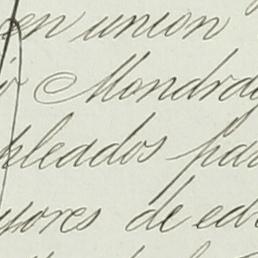 en union
Mondrag
pleados par
yores de eda